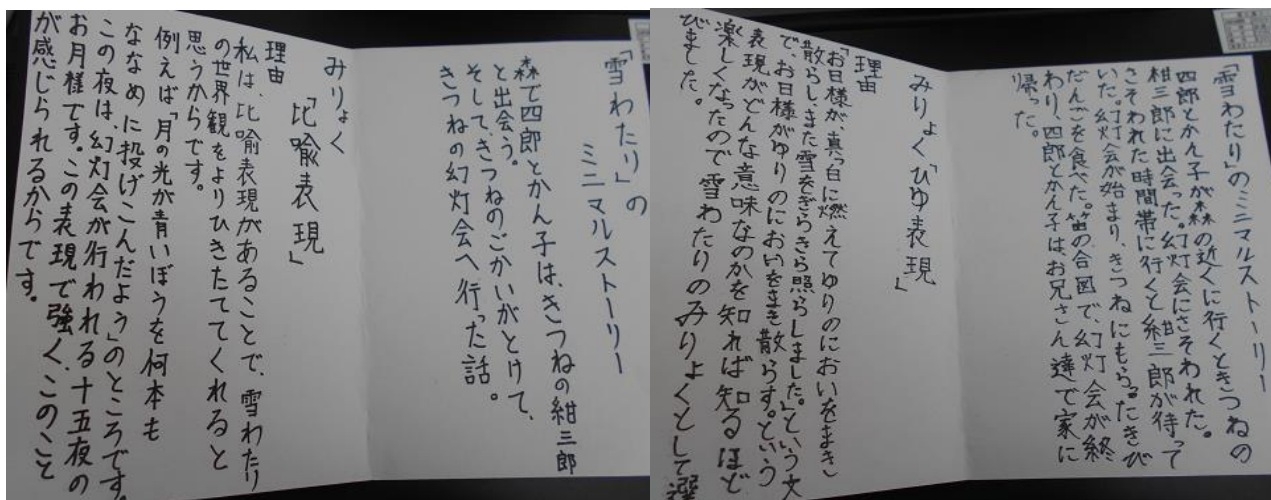 「雪わたり」の
ミニマルストーリー
森で四郎とかん子は、きつねの紺三郎
と出会う。
そして、きつねのごかいがとけて、
きつねの幻灯会へ行った話。
みりょく
「比喩表現」
理由
私は、比喩表現があることで、雪わたり
の世界観をよりひきたててくれると
思うからです。
例えば「月の光が青いぼうを何本も
ななめに投げこんだよう」のところです。
この夜は、幻灯会が行われる十五夜の
お月様です。この表現で強く、このこと
が感じられるからです。
「雪わたり」のミニマルストーリー
四郎とかん子が森の近くに行くときつねの
紺三郎に出会った。幻灯会にさそわれた。
さそわれた時間帯に行くと紺三郎が待って
いた。幻灯会が始まり、きつねにもらったきび
だんごを食べた。笛の合図で、幻灯会が終
わり、四郎とかん子はお兄さん達で家に
帰った。
みりょく「ひゆ表現」
理由
「お日様が、真っ白に燃えてゆりのにおいをまき
散らし、また雪をぎらぎら照らしました。」という文
で、お日様がゆりのにおいをまき散らす。という
表現がどんな意味なのかを知れば知るほど
楽しくなったので雪わたりのみりょくとして選
びました。